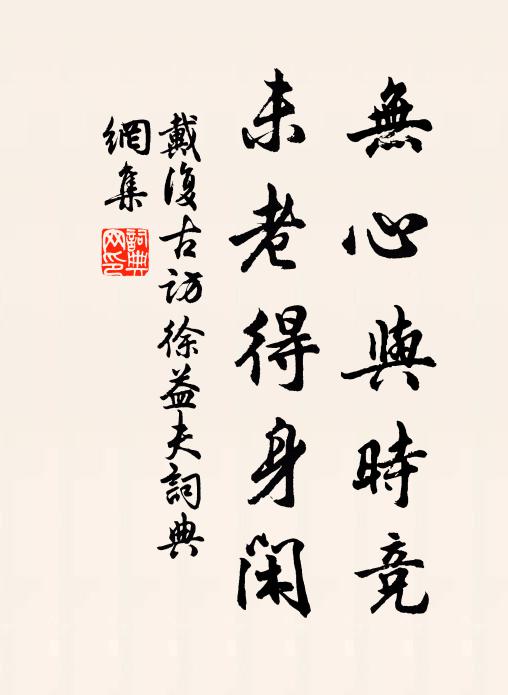 無心與時竞
未老得身閑
戴復古訪徐益夫詞典
網集
詞典
网印